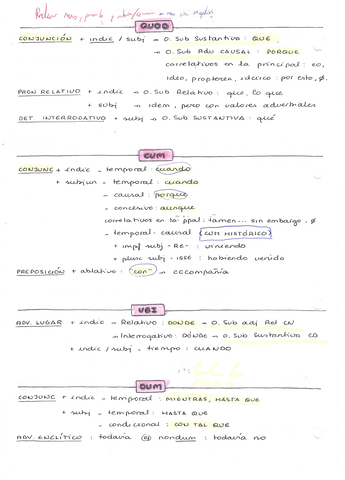 QUOD
CONJUNCIÓN + indic / subj → O. Sub Sustantiva : QUE
→ O. Sub Adv CAUSAL : PORQUE
correlativos en la principal : eo,
ideo, propterea, idcirco : por esto, Ø.
PRON RELATIVO + indic → O. Sub Relativo : que, lo que
+ subj → idem, pero con valores adverbiales
DET INTERROGATIVO + subj → O. Sub SUSTANTIVA : qué
CUM
CONJUNC + indic - temporal : cuando
+ subjun - temporal : cuando
- causal : porque
- concesivo : aunque
correlativos en la ppal : tamen... sin embargo, Ø
- temporal - causal (CUM HISTÓRICO)
+ impf subj - RE - : viniendo
+ plusc subj - ISSE : habiendo venido
PREPOSICIÓN + ablativo : "con" → CCCompañía
UBI
ADV. LUGAR + indic - Relativo : DONDE → O. Sub adj Rel CN
- Interrogativo : DÓNDE → O. Sub Sustantiva CD
+ indic / subj - tiempo : CUANDO
DUM
CONJUNC + indic - temporal : MIENTRAS, HASTA QUE
+ subj - temporal : HASTA QUE
- condicional : CON TAL QUE
ADV ENCLÍTICO : todavía nondum : todavía no